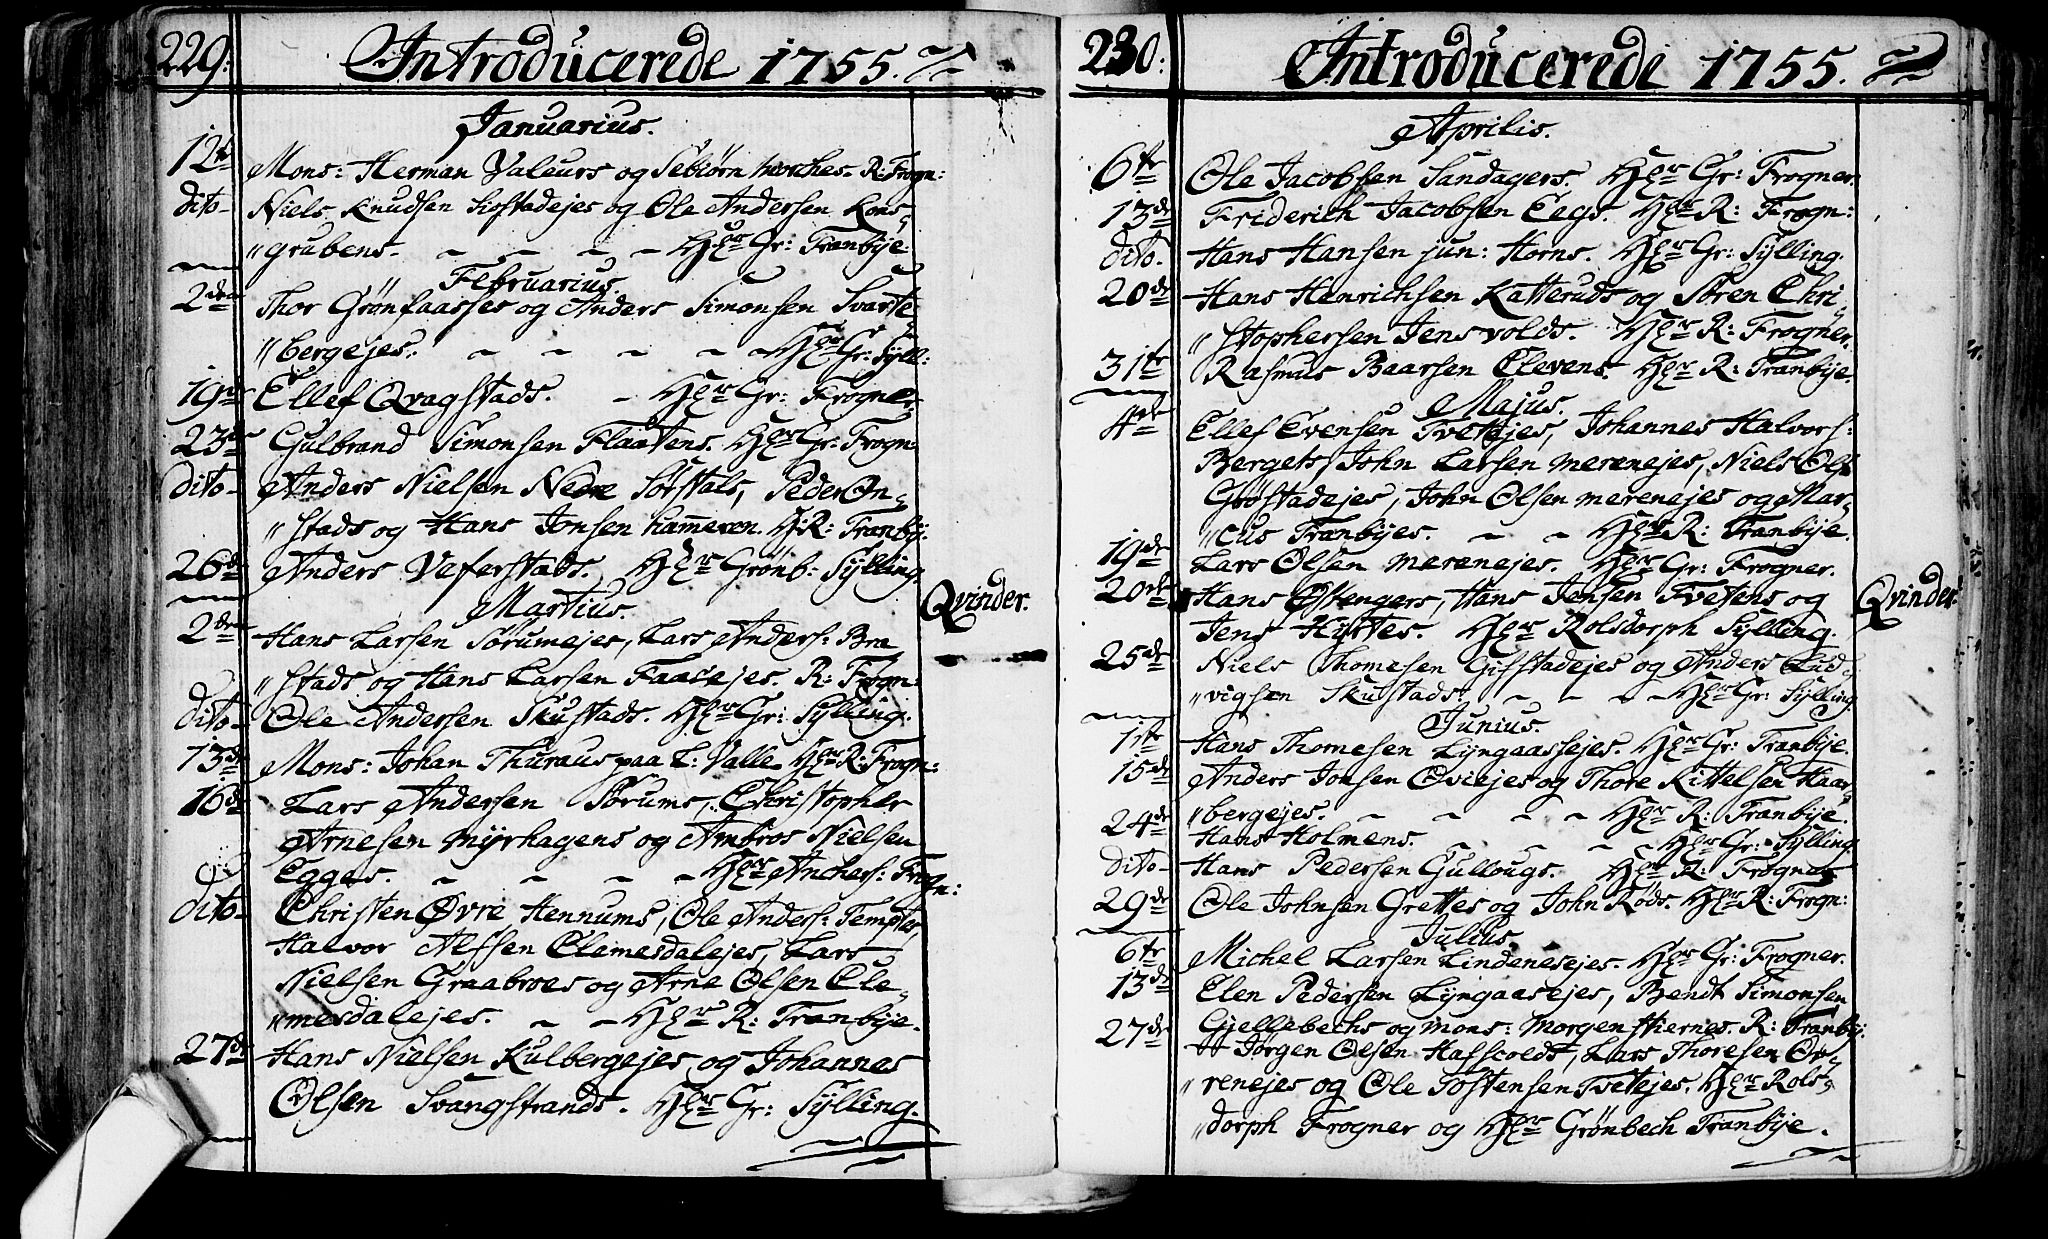 229.
Introducerede 1755.
Januarius.
12te Mons: Herman Valeurs og Sebiørn R: Frogn:
dito- Niels Knudsen Hofstadejes og Ole Andersen Kons-
"grubens. Hr Gr: Tranbije.
Februarius.
2den Thor Grønfaasses og Anders Simonsen Svarte-
"bergejes. Hr Gr: Syll:
19de Ellef Qvagstads. Hr Gr: Frogner.
23de Gulbrand Simonsen Flaatens. Hr Gr: Frogn:
dito- Anders Nielsen Nedre Sørstals, Peder On-
"stads og Hans Jonsen hammeren. H: R: Tranby:
26de Anders Veferstads. Hr Grønb: Sylling.
Martius.
2den Hans Larsen Sørumejes, Lars Anders: Bra
"stads og Hans Larsen Faasejes. R: Frogn:
dito- Ole Andersen Skustads. Hr Gr: Sylling:
13de Mons: Johan Thuraus paa L: Valle Hr R: Frogn:
16de Lars Andersen Sørums, Christopher
Arnesen Myrhagens og Ambros Nielsen
Egges. Hr Anchers: Frogn:
dito- Christen Øvre Hennums, Ole Anders: Templer,
Halvor Alfsen Clemesdalejes, Lars
Nielsen Graabroes og Arne Olsen Cle-
"mesdalejes. Hr R: Tranbije.
27de Hans Nielsen Kulbergejes og Johannes
Olsen Svangstrands. Hr Gr: Sylling.
Qvinder.
230:
Introducerede 1755.
Aprilis.
6te Ole Jacobsen Sandagers. Hr Gr: Frogner.
13de Friderich Jacobsen Eegs. Hr R: Frogn:
dito- Hans Hansen jun: Horns. Hr Gr: Sylling.
20de Hans Henrichsen Katteruds og Søren Chri-
"stophersen Jensvolds. Hr R: Frogner.
31te Rasmus Baarsen Elevens. Hr R: Tranbije.
Majus.
4de Ellef Evensen Tvetejes, Johannes Halvors:
Bergets, John Larsen Merenejes, Niels Ols:
Grøstadejes, John Olsen Merenejes og Mar-
"cus Tranbijes. Hr R: Tranbije.
19de Lars Olsen Merenejes. Hr Gr: Frogner.
20de Hans Østengers, Hans Jensen Tvetens og
Jens Hyttes. Hr Rolsdorph Sylling.
25de Niels Thomesen Gifstadejes og Anders Lud-
"vigsen Skustads. Hr Gr: Sylling.
Junius.
1te Hans Thomesen Lyngaassejes. Hr Gr: Tranbije.
15de Anders Jonsen Qviejes og Thore Kittelsen Haar-
"bergejes. Hr R: Tranbije.
24de Hans Holmens. Hr Gr: Sylling.
dito- Hans Pedersen Gullougs. Hr R: Frogner.
29de Ole Johnsen Grettes og John Røds. Hr R: Frogn:
Julius.
6te Michel Larsen Lindenesejes. Hr Gr: Frogner.
13de Elen Pedersen Lyngaasejes, Bendt Simonsen
Gjellebechs og Mons: Morgenstiernes. R: Tranby:
27de Jørgen Olsen Lars Thoresen Øv-
"renejes og Ole Tostensen Tvetejes. Hr Rols-
"dorph Frogner og Hr Grønbech Tranbije.
Qvinder.